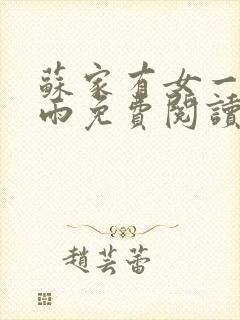 蘇家有女一
雨免費閱讀
趙芸蕾